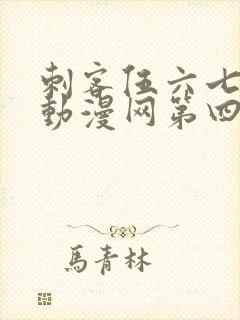 刺客伍六七
動漫网第四
馬青林